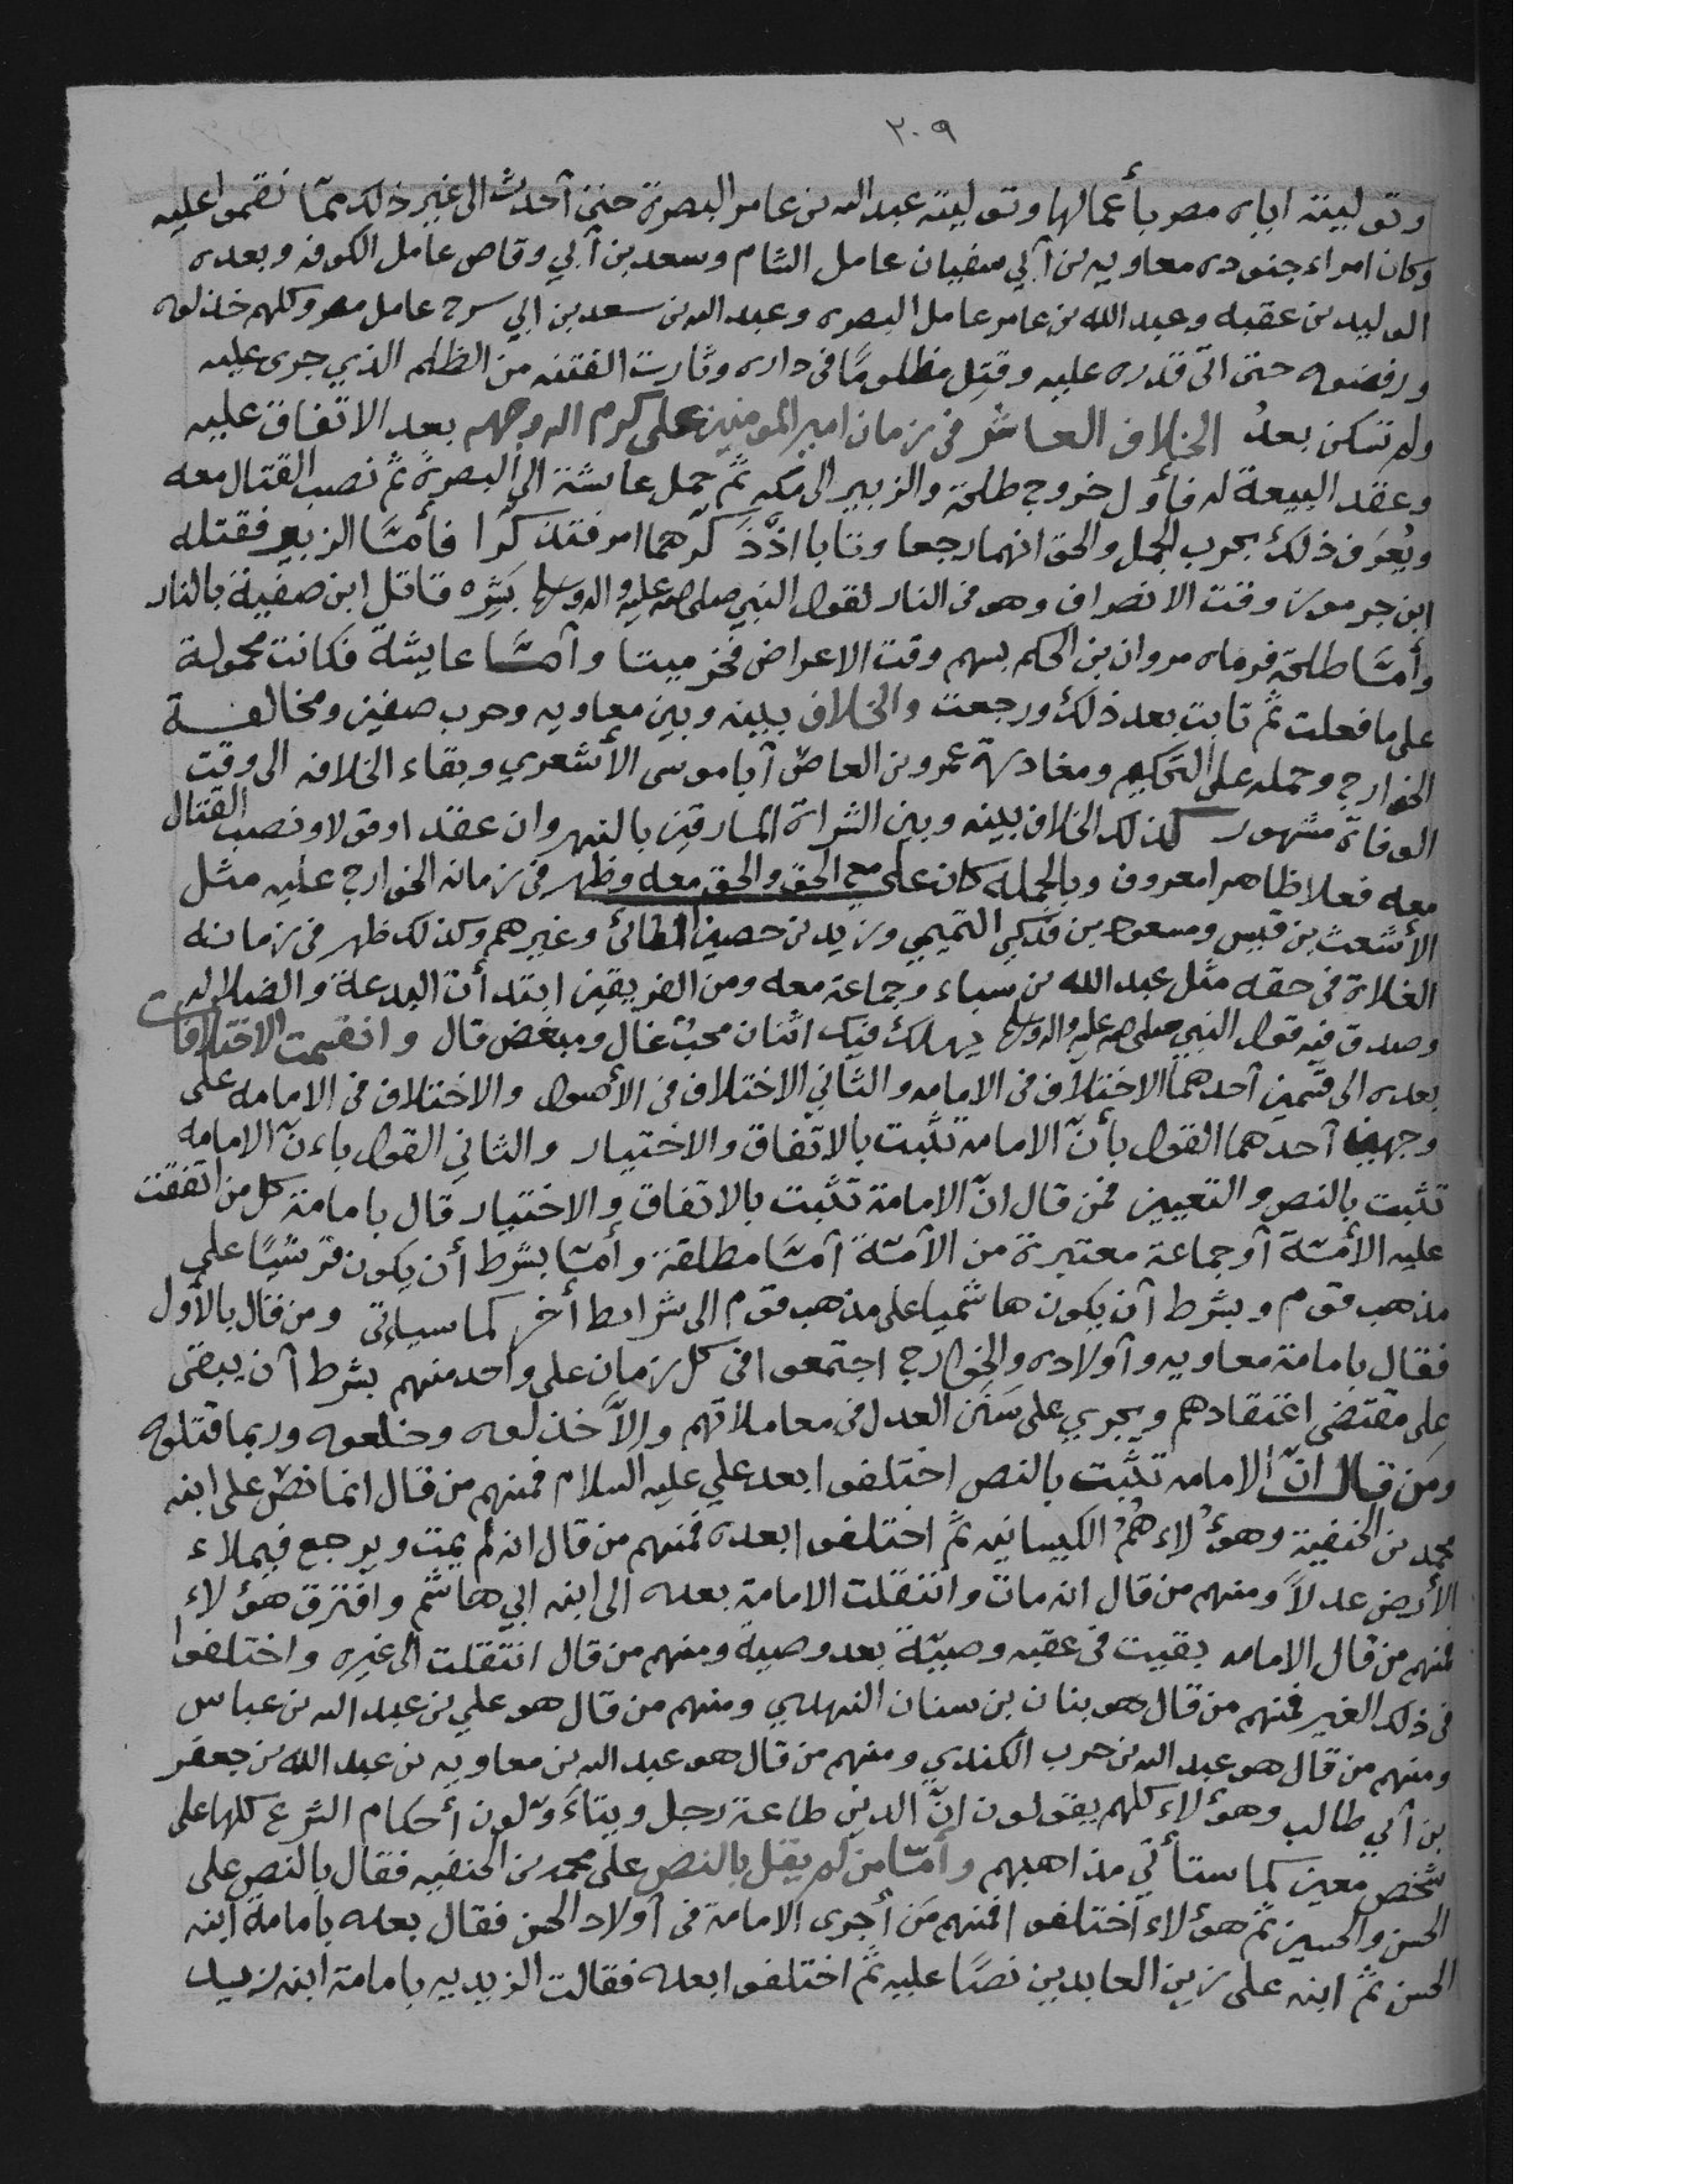 ٢٠٩
وتوليته اياه مصر بأعمالها وتوليته عبد الله بن عامر البصرة حتى آحدث الى غير ذلك ممّا نقموا عليه
وكان امراء جنوده معاويه بن آبي سفيان عامل الشام وسعد بن آبي وقاص عامل الكوفه وبعده
الوليد بن عقبه وعبد الله بن عامر عامل البصره وعبد الله بن سعد بن ابي سرح عامل مصر وكلهم خذلوه
ورفضوه حتى اتى قدره عليه وقتِل مظلومًا في داره وثارت الفتنه من الظلم الذي جرى عليه
ولم تسكن بعدُ الخلاف العاشر في زمان امير المومنين على كرم الله وجهه بعد الاتفاق عليه
وعقد البيعة له فأول خروج طلحة والزبير الى مكه ثمّ حمل عائشة الى البصرة ثمّ نصب القتال معه
ويُعرَف ذلك بحرب الجمل والحق انهما رجعا وتابا اذْ ذَكّرهما امر فتذكّرا فأمّا الزبير فقتله
ابن جرموز وقت الانصراف وهو في النار لقول النبي صلى الله عليه واله وسلم بَشِّره قاتل ابن صفية بالنار
وأمّا طلحة فرماه مروان بن الحكم بسهم وقت الاعراض فخرّ ميتا وآمّا عايشة فكانت محمولة
على ما فعلت ثمّ تابت بعد ذلك ورجعت والخلاف بينه وبين معاويه وحرب صفين ومخالفة
الخوارج وحمله على التحكيم ومغادرة عمرو بن العاص آبا موسى الأشعري وبقاء الخلافه الى وقت
الوفاة مشهور كذلك الخلاف بينه وبين الشراة المارقين بالنهروان عقدا وقولا ونصب القتال
معه فعلا ظاهرا معروف وبالجمله كان على مع الحق والحق معه وظهر في زمانه الخوارج عليه مثل
الأشعث بن قيس ومسعود بن فدكي التميمي وزيد بن حصين الطائي وغيرهم وكذلك ظهر في زمانه
الغلاة في حقه مثل عبد الله بن سباء وجماعة معه ومن الفريقين ابتدأت البدعة والضلاله
وصدق فيه قول النبي صلى الله عليه واله وسلم يهلك فيك اثنان محبّ غال ومبغض قال وانقسمت الاختلافات
بعده الى قسمين آحدهما الاختلاف في الامامه والثاني الاختلاف في الأصول والاختلاف في الامامه على
وجهين آحدهما القول بأنّ الامامة تثبت بالاتفاق والاختيار والثاني القول باءنّ الامامه
تثبت بالنص والتعيين فمن قال انّ الامامة تثبت بالاتفاق والاختيار قال بامامة كل من اتفقت
عليه الأمّة آو جماعة معتبرة من الآمّة آمّا مطلقة وأمّا بشرط أن يكون قرشيًا على
مذهب قوم وبشرط آن يكون هاشميا على مذهب قوم الى شرائط أخر كما سيأتي ومن قال بالأول
فقال بامامة معاويه وآولاده والخوارج اجتمعوا في كل زمان على واحد منهم بشرط آن يبقى
على مقتضى اعتقادهم ويجري على سَنَن العدل في معاملاتهم والاّ خذلوه وخلعوه وربما قتلوه
ومَن قال انّ الامامه تثبت بالنص اختلفوا بعد علي عليه السلام فمنهم من قال انما نصّ على ابنه
محمد بن الحنفية وهؤلاء همُ الكيسانيه ثمّ اختلفوا بعده فمنهم من قال انه لم يمت ويرجع فيملاء
الأرض عدلاً ومنهم من قال انه مات وانتقلت الامامة بعده الى ابنه ابي هاشم وافترق هؤلاء
فمنهم من قال الامامه بقيت في عقبه وصيّة بعد وصية ومنهم من قال انتقلت الى غيره واختلفوا
في ذلك الغير فمنهم من قال هو بنان بن سنان النهدي ومنهم من قال هو علي بن عبد الله بن عباس
ومنهم من قال هو عبد الله بن حرب الكندي ومنهم من قال هو عبد الله بن معاويه بن عبد الله بن جعفر
بن آبي طالب وهؤلاء كلهم يقولون انّ الدين طاعة رجل ويتأوّلون أحكام الشرع كلها على
شخص معين كما ستأتي مذاهبهم وأمّا من لم يقل بالنص على محمد بن الحنفيه فقال بالنص على
الحسن والحسين ثمّ هؤلاء اختلفوا فمنهم مَن أجرى الامامة في آولاد الحسن فقال بعده بامامة ابنه
الحسن ثمّ ابنه على زين العابدين نصًا عليه ثمّ اختلفوا بعده فقالت الزيديه بامامة ابنه زيد